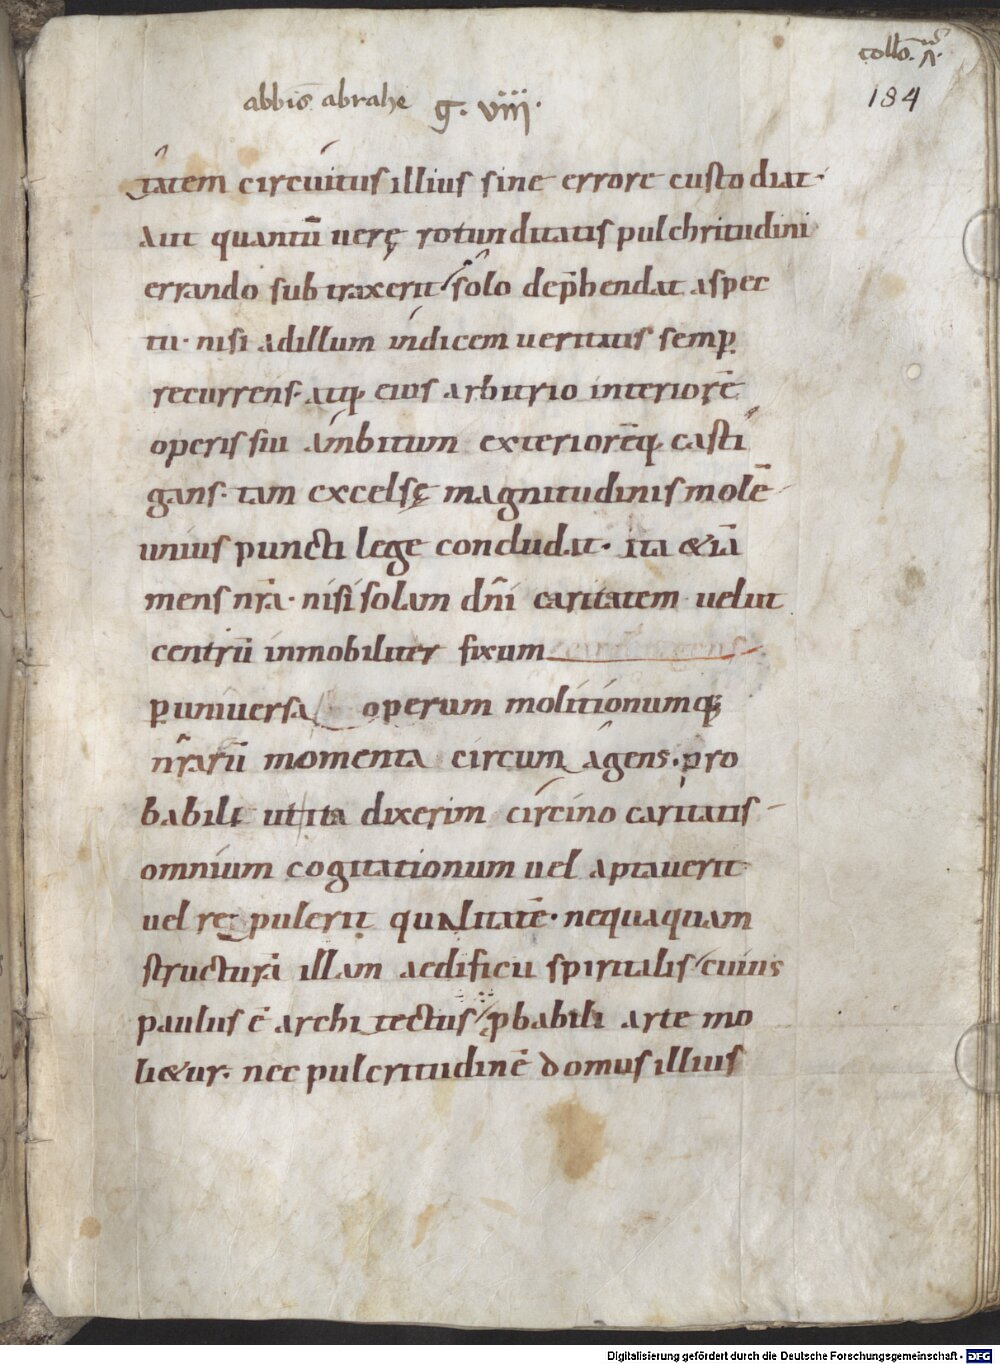 collō. 
184
abbis̄ abrahe g. viii.
tatem circuitus illius sine errore custodiat.
Aut quantū uerę rotunditatis pulchritudini
errando subtraxerit solo dep̄hendat aspec
tu. nisi ad illum indicem ueritatis semꝑ
recurrens. atq; eius arbitrio interiorē
operis sui ambitum exteriorēq; casti
gans. tam excelsę magnitudinis molē
unius puncti lege concludat. ita &iā
mens nr̄a. nisi solam dn̄i caritatem uelut
centrū inmobiliter fixum
ꝑ uniuersa operum molitionumq;
nr̄arū momenta circum agens. pro
babili ut ita dixerim circino caritatis
omnium cogitationum uel aptauerit
uel repulerit qualitatē. nequaquam
structurā illam aedificii spiritalis cuius
paulus ē architectus ꝓbabili arte mo
li&ur. nec pulcritudinē domus illius
Digitalisierung gefördert durch die Deutsche Forschungsgemeinschaft - DFG